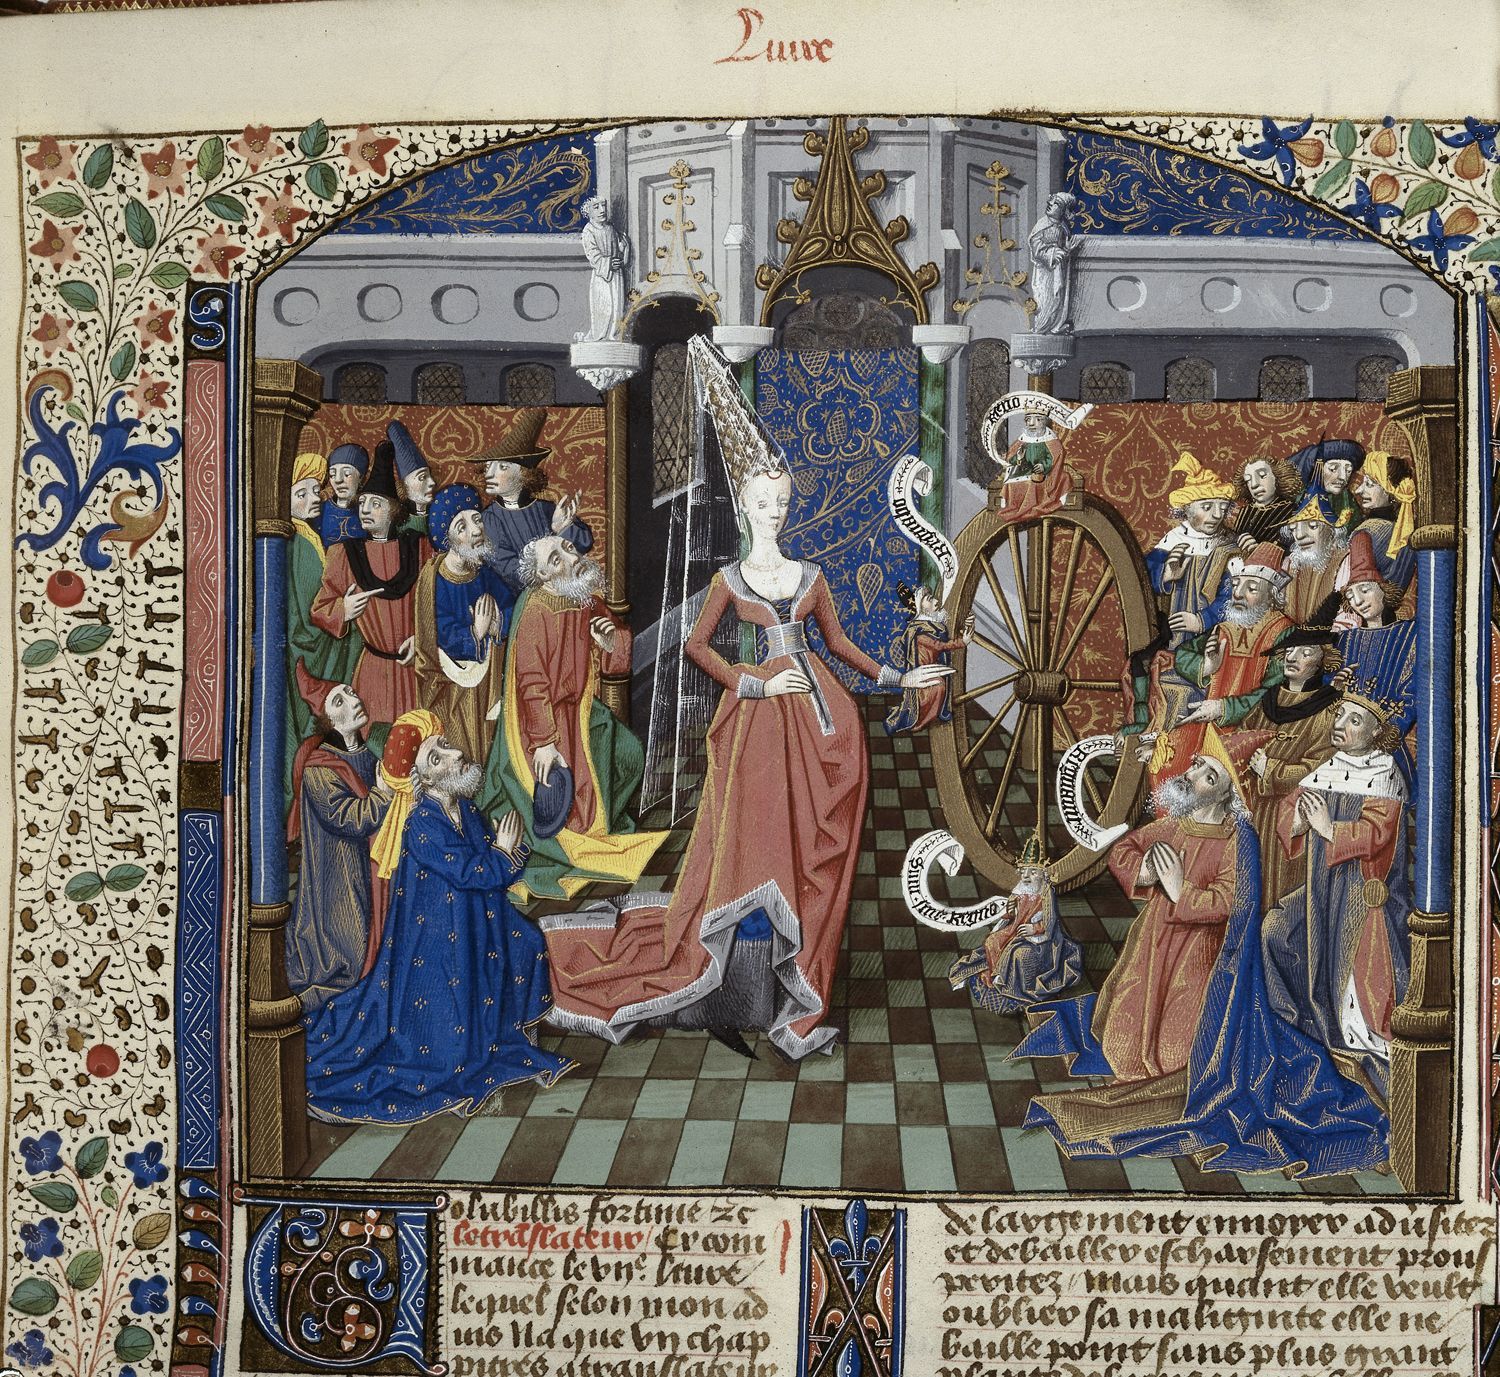 Liure
Regno
Regnabo
Regnaui
Sum sine Regno
Volubillis fortune &c
letraslateur Cy com
mance le vije liure
lequel selon mon ad
uis na que vn chap
pitres a translateur
de largement enuoyer aduisitez
et de bailler escharsement prous
peritez / mais quant elle veult
oublier sa malignite elle ne
baille point sans plus grant